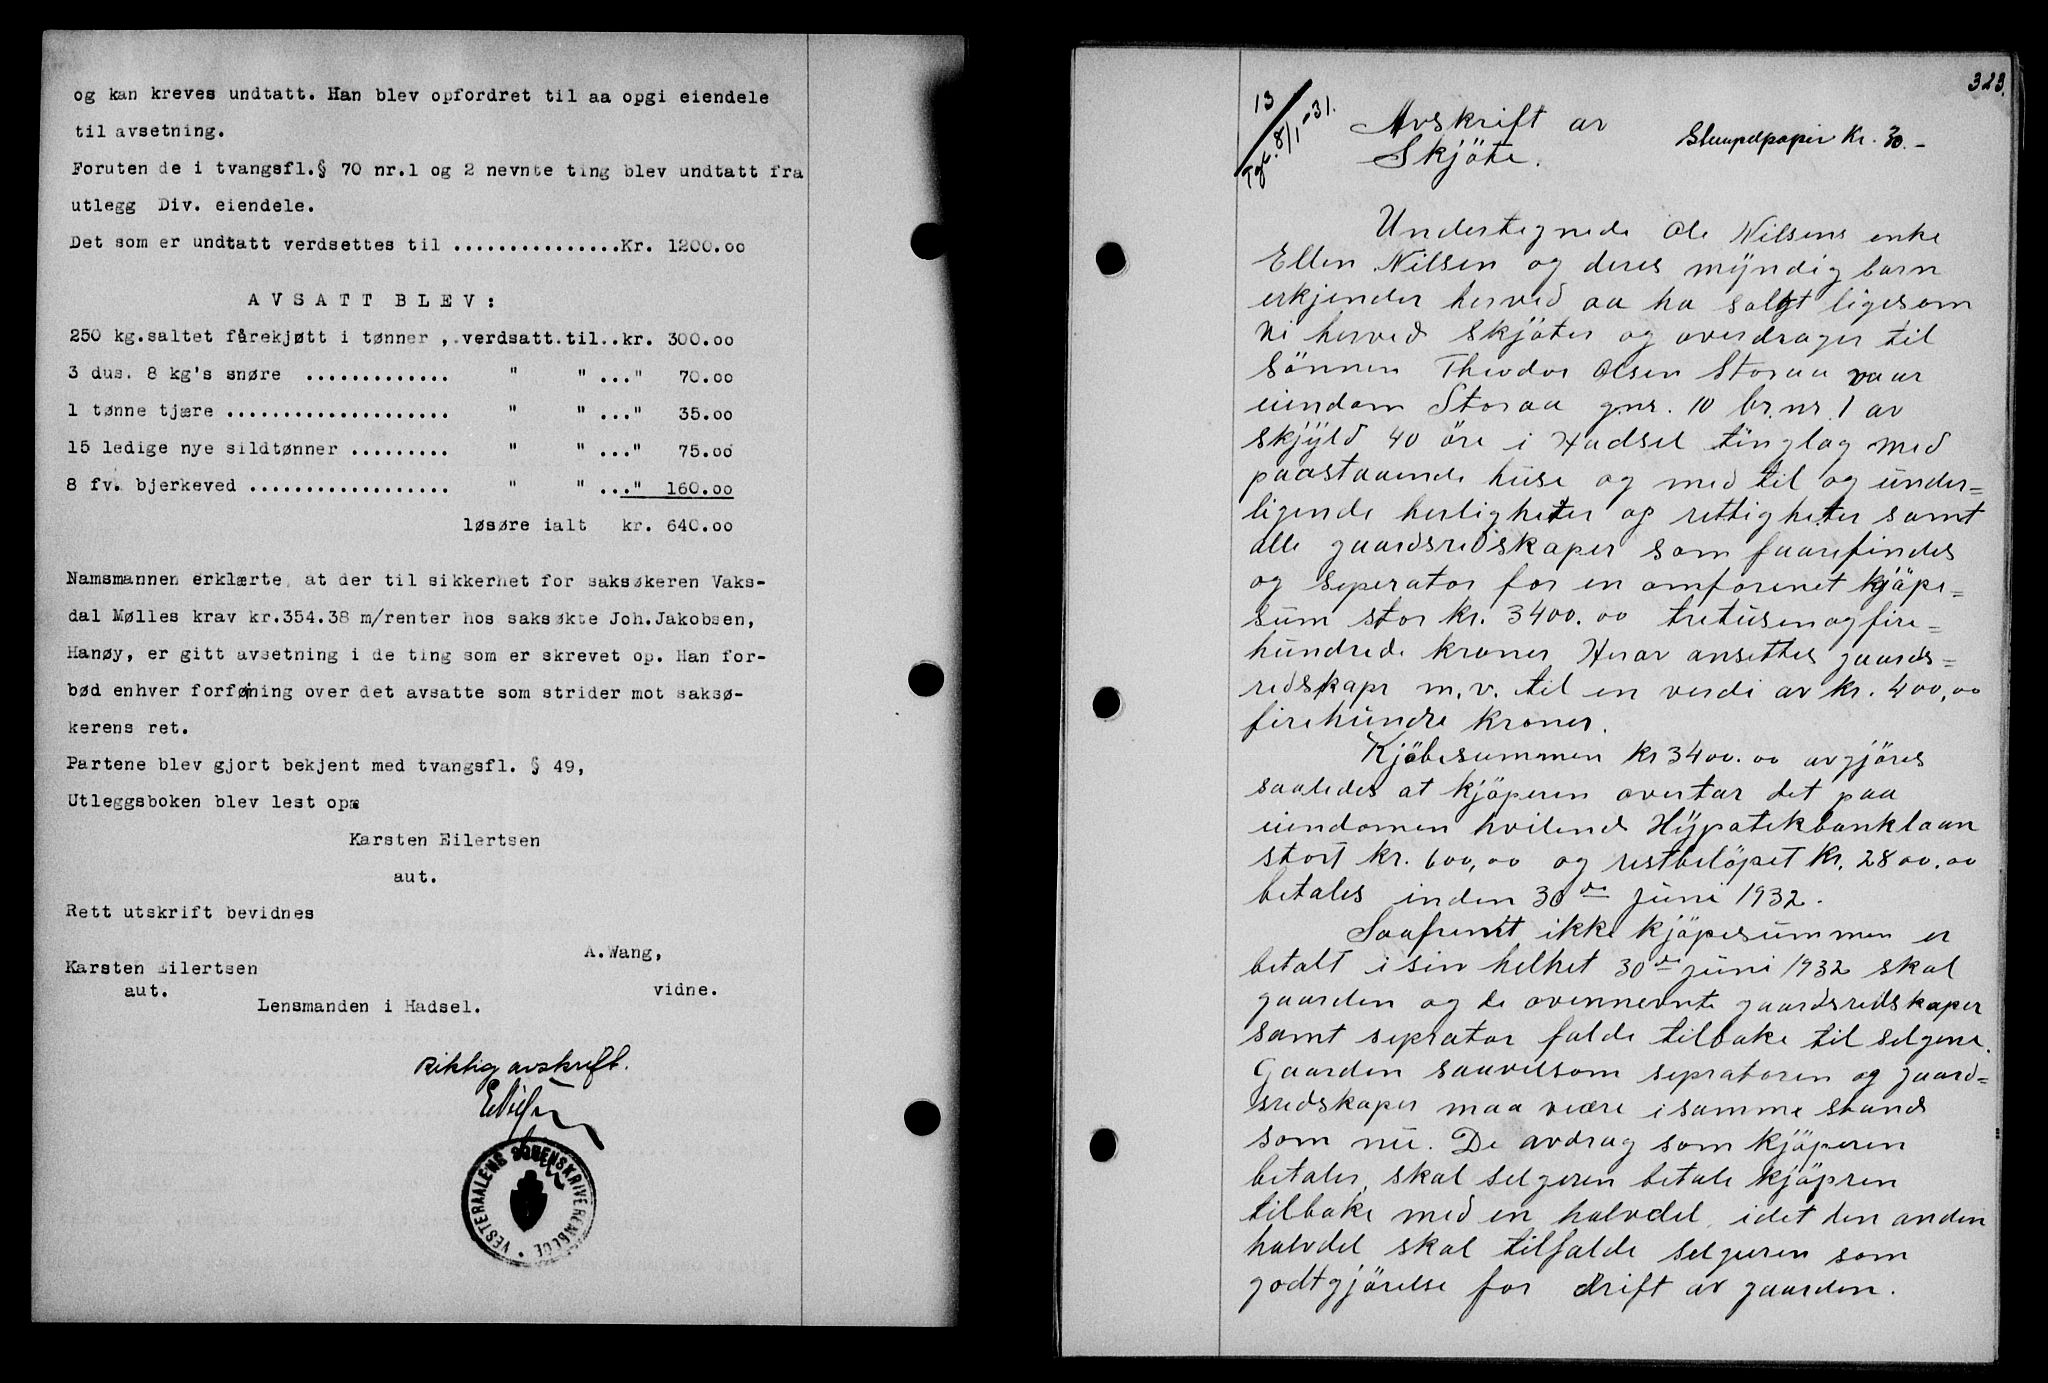 og kan kreves undtatt. Han blev opfordret til aa opgi eiendele
til avsetning.
Foruten de i tvangsfl.§ 70 nr.1 og 2 nevnte ting blev undtatt fra
utlegg Div. eiendele.
Det som er undtatt verdsettes til ...............Kr. 1200.00
AVSATT BLEV:
250 kg.saltet fårekjøtt i tønner ,.verdsatt.til..kr. 300.00
3 dus. 8 kg's snøre ............. " " ..." 70.00
1 tønne tjære .................... " " ..." 35.00
15 ledige nye sildtønner ......... " " ..." 75.00
8 fv. bjerkeved .................. " " ..." 160.00
løsøre ialt kr. 640.00
Namsmannen erklærte at der til sikkerhet for saksøkeren Vaks-
dal Mølles krav kr.354.38 m/renter hos saksøkte Joh.Jakobsen,
Hanøy, er gitt avsetning i de ting som er skrevet op. Han for-
bød enhver forføining over det avsatte som strider mot saksø-
kerens ret.
Partene blev gjort bekjent med tvangsfl. § 49,
Utleggsboken blev lest op.
Karsten Eilertsen
aut.
Rett utskrift bevidnes
A.Wang,
Karsten Eilertsen
aut. vidne.
Lensmanden i Hadsel.
Riktig avskrift.
VESTERAALENS SORENSKRIVEREMBEDE
323.
13
Tgl. 8/1-31.
Avskrift av
Skjöte.
Stempelpapir Kr. 30.-
Undertegnede Ole Nilsens enke
Ellen Nilsen og deres myndig barn
erkjender herved aa ha solgt ligesom
vi herved skjöter og overdrager til
sönnen Theodor Olsen Storaa vaar
eiendom Storaa gnr. 10 br.nr. 1 av
skyld 40 öre i Hadsel tinglag med
paastaaende huse og med til og under=
ligende herligheter og rettigheter samt
alle gaardsredskaper som faarefindes
og seperator for en omforenet kjöpe=
sum stor kr. 3400.00 tretusenogfire=
hundrede kroner Herav ansettes gaards=
redskapr m.v. til en verdi av kr. 400,00
firehundre kroner.
Kjöbesummen kr 3400.00 avgjöres
saaledes at kjöperen overtar det paa
eiendomen hvilend Hypotekbanklaan
stort kr. 600,00 og restbelöpet kr. 2800.00
betales inden 30de Juni 1932.
Saafremt ikke kjöpesummen er
betalt i sin helhet 30de juni 1932 skal
gaarden og de ovennevnte gaardsredskaper
samt seprator falde tilbake til selgene.
Gaarden saavelsom sepratoren og gaard=
sredskaper maa være i samme stand
som nu. De avdrag som kjöperen
betaler, skal selgeren betale kjöpren
tilbake med en halvdel, idet den anden
halvdel skal tilfalde selgeren som
godtgjörelse for drift av gaarden.